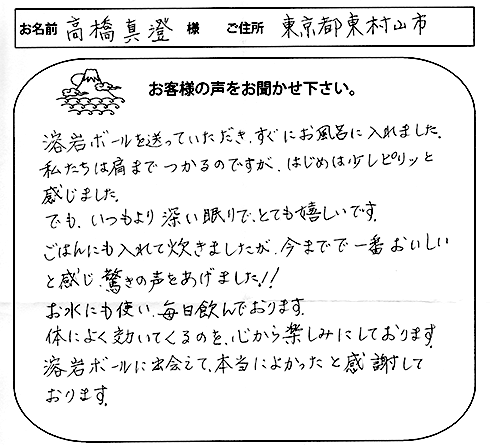 お名前 高橋真澄 様 ご住所 東京都東村山市
お客様の声をお聞かせ下さい。
溶岩ボールを送っていただき、すぐにお風呂に入れました。
私たちは肩までつかるのですが、はじめは少しピリッと
感じました。
でも、いつもより深い眠りで、とても嬉しいです。
ごはんにも入れて炊きましたが、今までで一番おいしい
と感じ、驚きの声をあげました!!
お水にも使い、毎日飲んでおります。
体によく効いてくるのを、心から楽しみにしております。
溶岩ボールに出会えて、本当によかったと感謝して
おります。